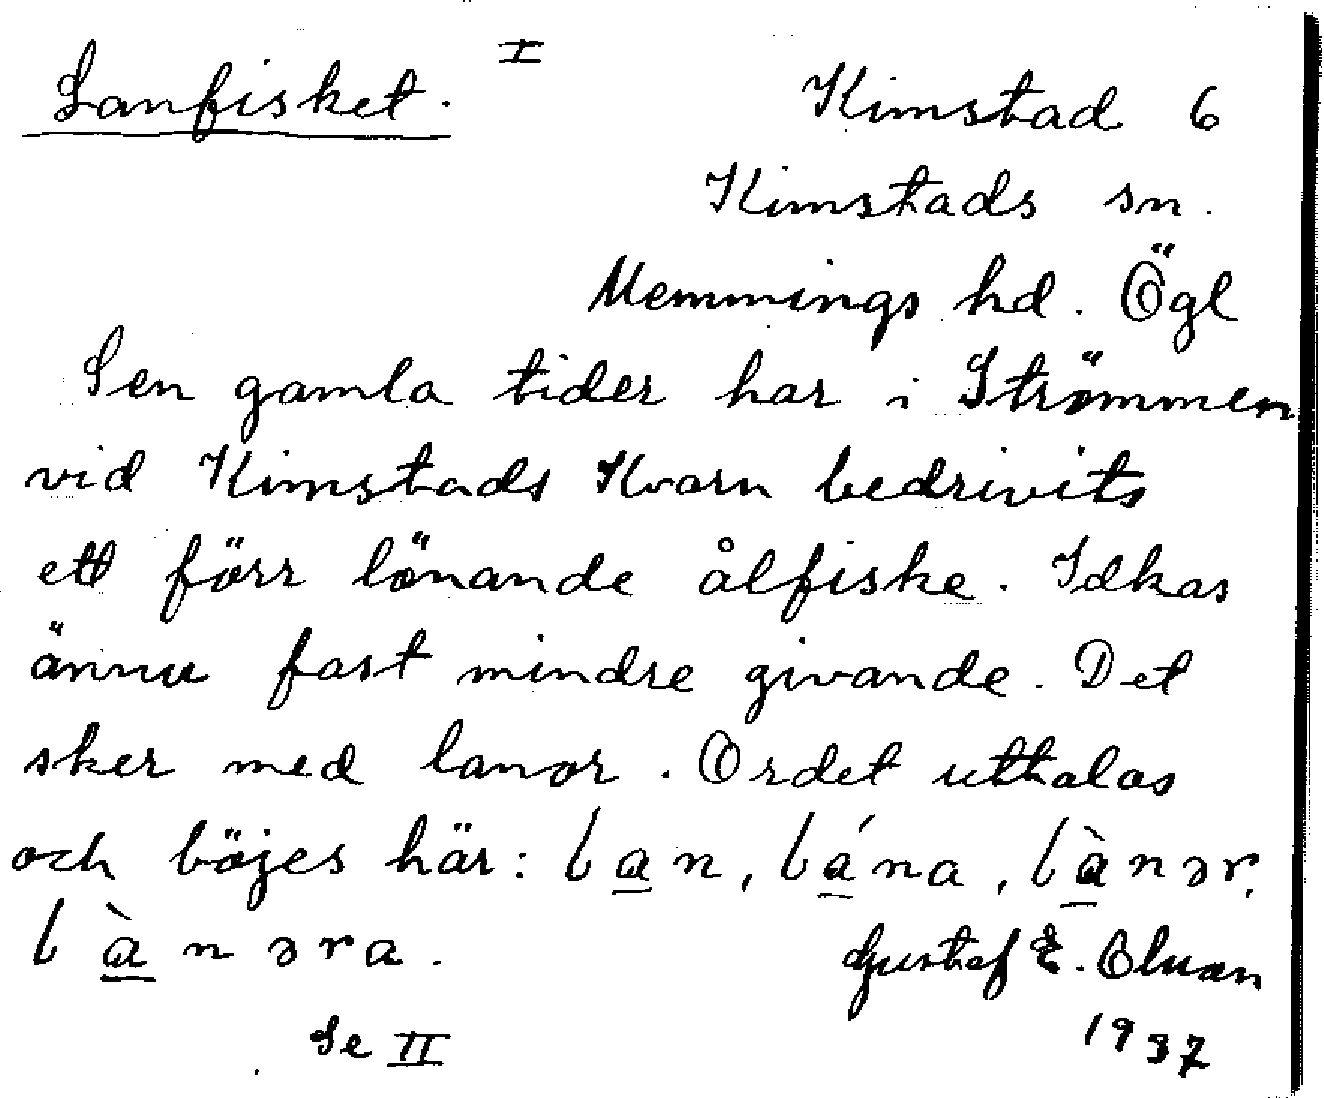 Lanfisket. I
Kimstad 6
Kimstads sn.
Memmings hd. Ögl
Sen gamla tider har i Strömmen
vid Kimstads Kvarn bedrivits
ett förr lönande ålfiske. Idkas
ännu fast mindre givande. Det
sker med lanor. Ordet uttalas
och böjes här: lan, lána, lànər,
lànəra.
Gustaf E. Olsson
Se II
1937